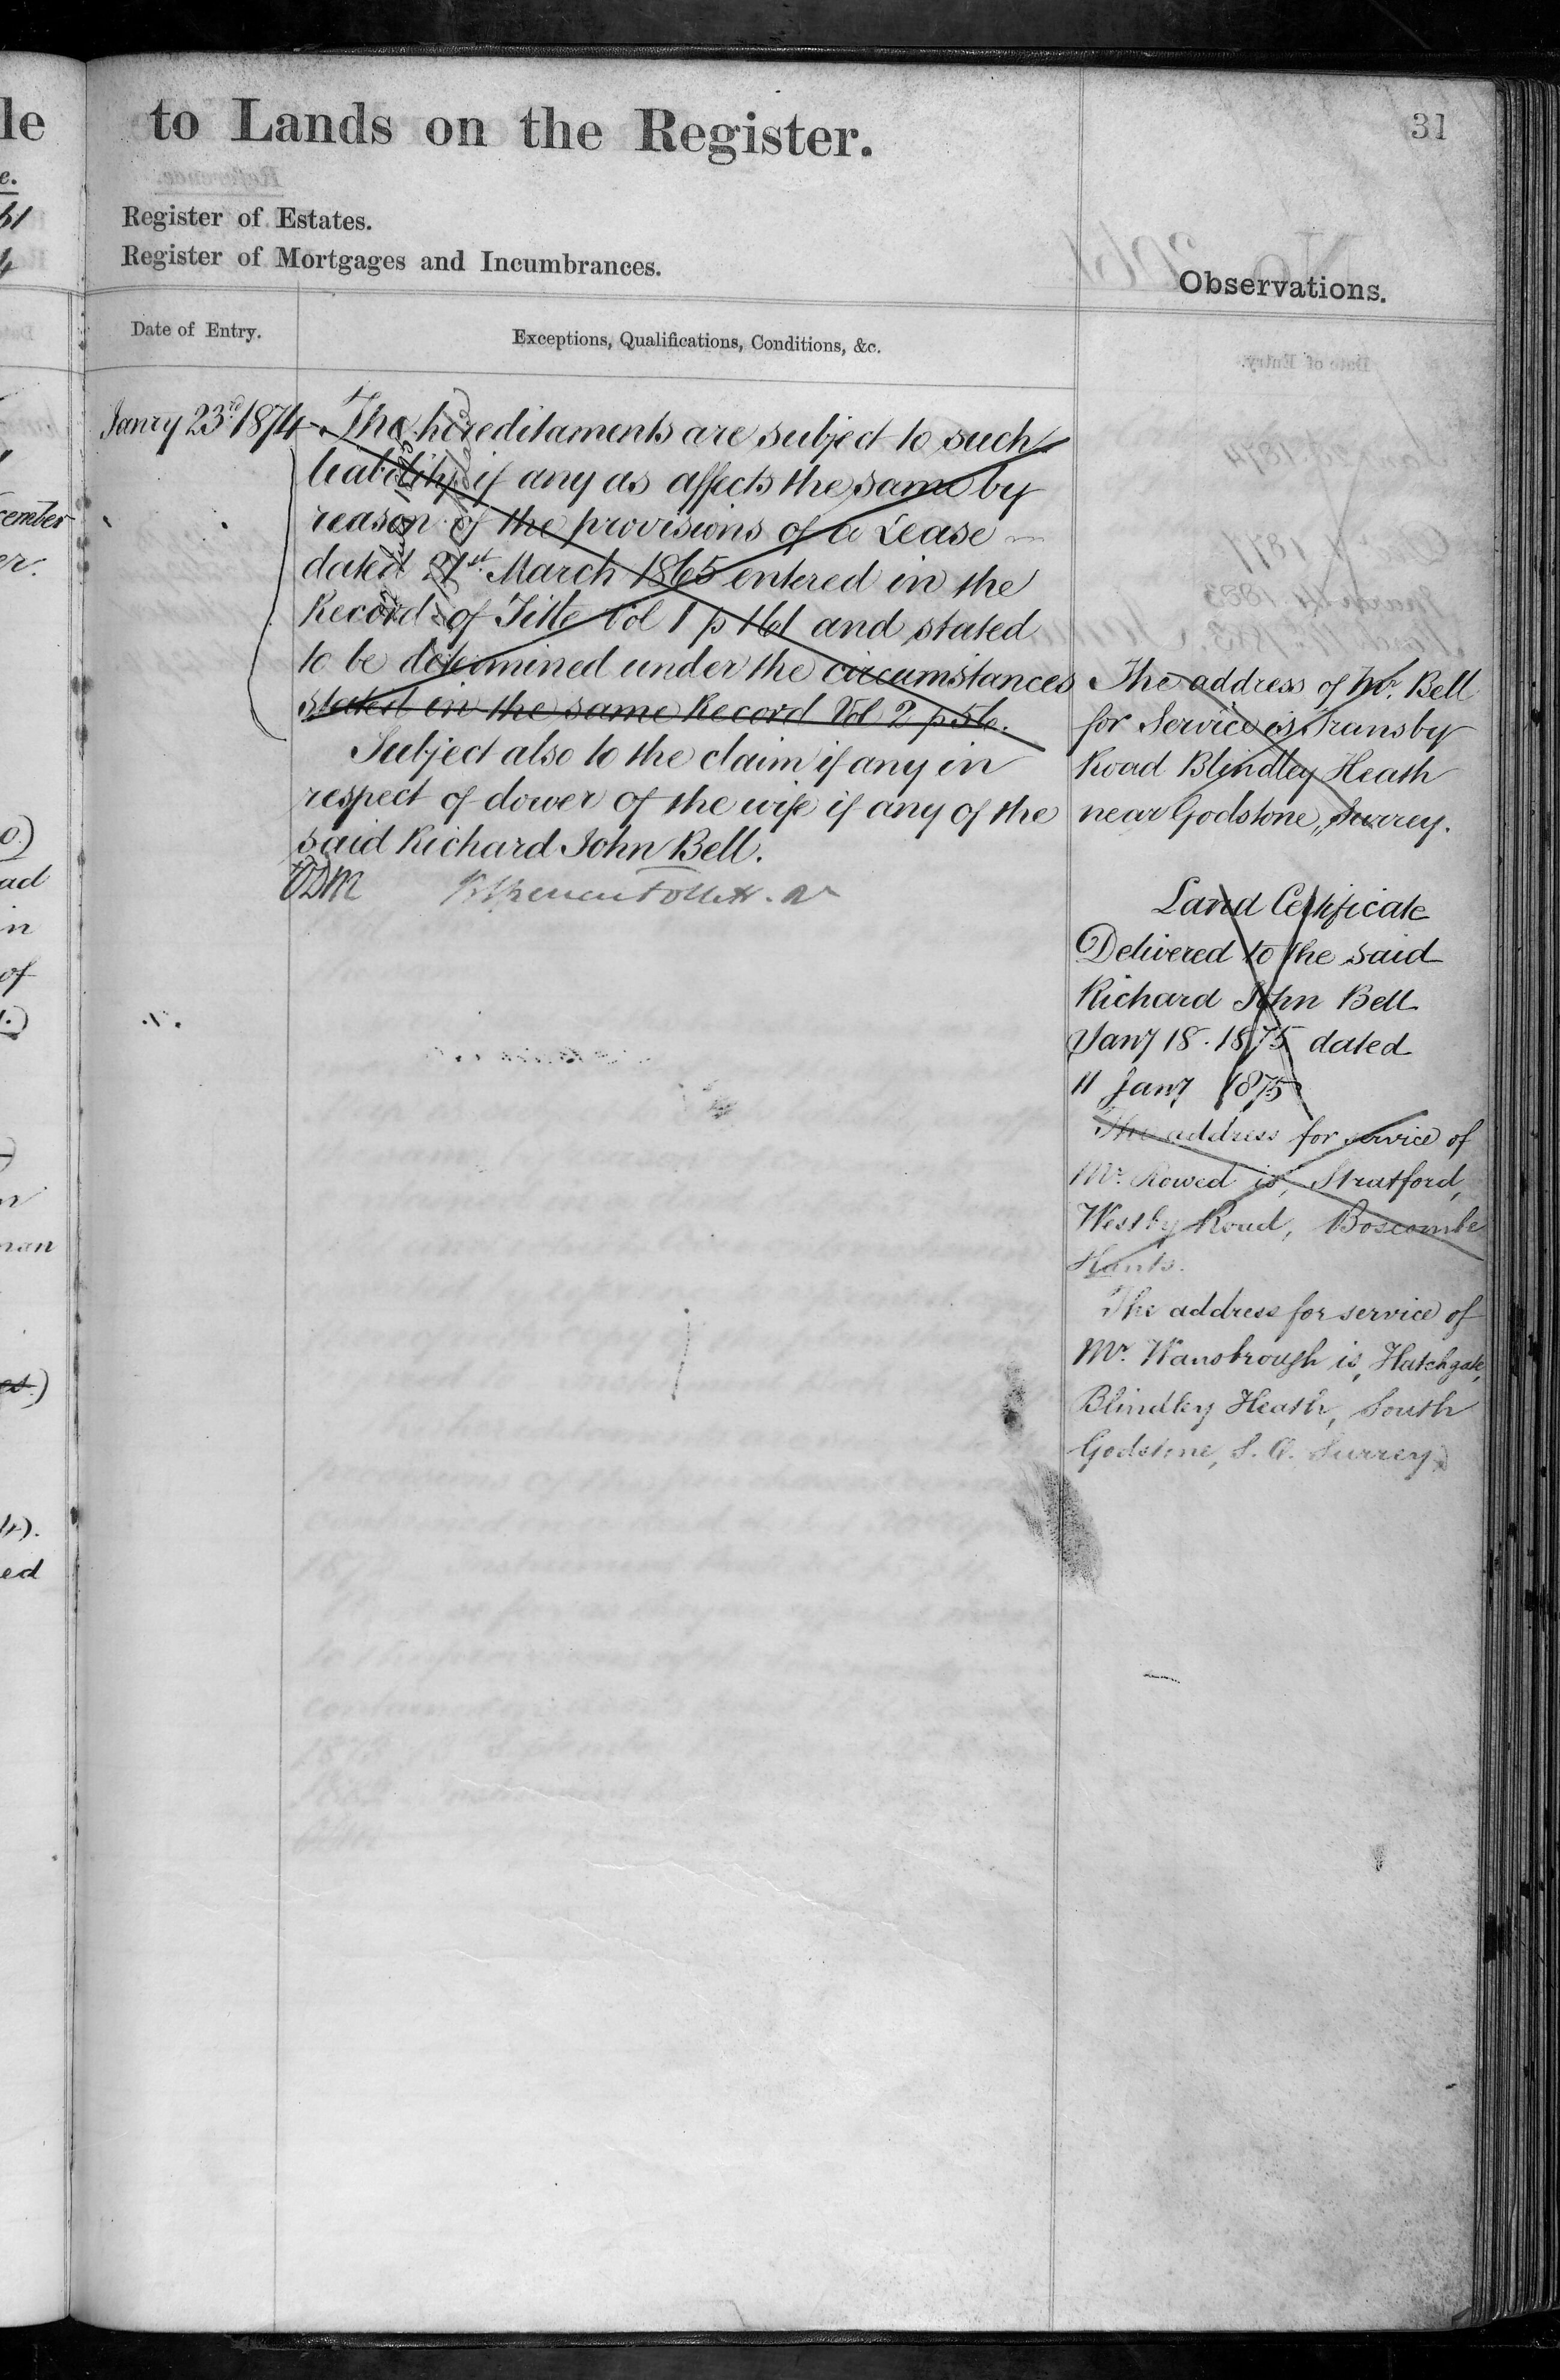 to Lands on the Register.
31
Register of Estates.
Register of Mortgages and Incumbrances.
Observations.
Date of Entry.
Exceptions, Qualifications, Conditions, &c.
Janry 23rd 1874
The hereditaments are subject to such
liability if any as affects the same by
reason of the provisions of a Lease
dated 21st March 1865 entered in the
Record of Title Vol 1 p 161 and stated
to be determined under the circumstances
stated in the same Record Vol 2 p 56.
Subject also to the claim if any in
respect of dower of the wife if any of the
said Richard John Bell.
The address of Mr. Bell
for Service is Transby
Road Blindley Heath
near Godstone, Surrey.
Land Certificate
Delivered to the said
Richard John Bell
Jany 18. 1875 dated
11 Jany 1875
The address for service of
Mr. Rowed is, Stratford,
Westby Road, Boscombe
Hants.
The address for service of
Mr. Wansbrough is, Hatchgate,
Blindley Heath, South
Godstone, S.O. Surrey.